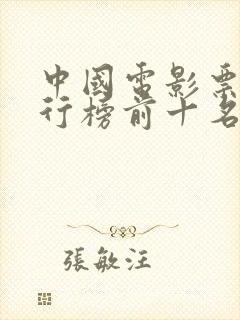 中國電影票
行榜前十名
張敏汪